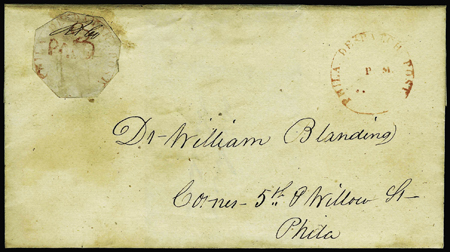 PAID
PHILA DESPATCH POST
P M.
Dr William Blanding
Corner 5th & Willow St
Phila